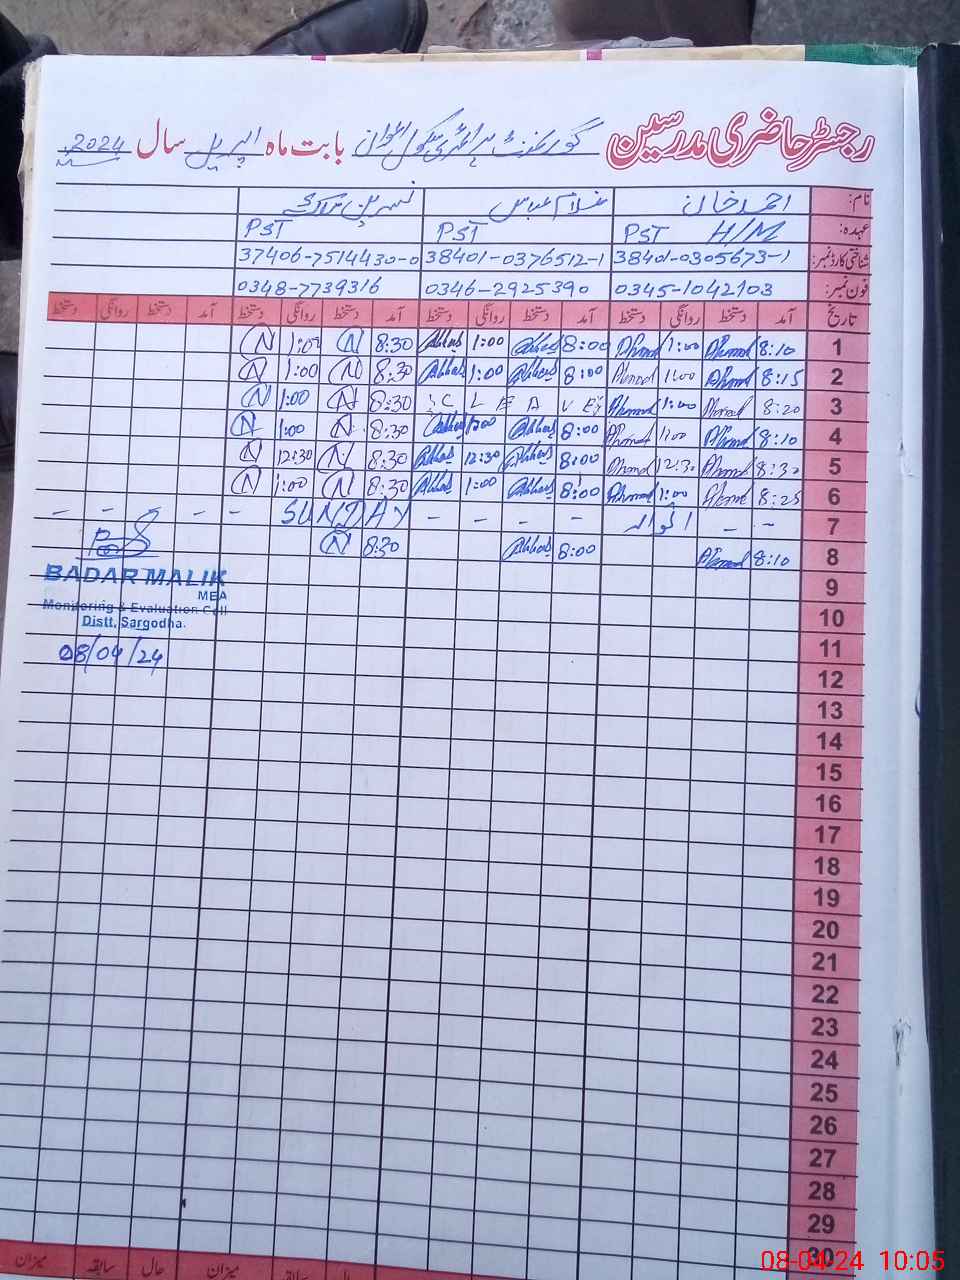 رجسٹر حاضری مدرسین گورنمنٹ پرائمری سکول بابت ماہ اپریل سال 2024
نام: احمد خان غلام عباس نسرین
عہدہ: PST H/M PST PST
شناختی کارڈ نمبر: 38401-0305673-1 38401-0376512-1 37406-7514430-0
فون نمبر: 0345-1042103 0346-2925390 0348-7739316
تاریخ آمد دستخط روانگی دستخط آمد دستخط روانگی دستخط آمد دستخط روانگی دستخط آمد دستخط روانگی دستخط
1 8:10 Ahmad 1:00 Ahmad 8:00 Abbas 1:00 Abbas 8:30 N 1:00 N
2 8:15 Ahmad 1:00 Ahmad 8:00 Abbas 1:00 Abbas 8:30 N 1:00 N
3 8:20 Ahmad 1:00 Ahmad C LEAVE 8:30 N 1:00 N
4 8:10 Ahmad 1:00 Ahmad 8:00 Abbas 1:00 Abbas 8:30 N 1:00 N
5 8:30 Ahmad 12:30 Ahmad 8:00 Abbas 12:30 Abbas 8:30 N 12:30 N
6 8:25 Ahmad 1:00 Ahmad 8:00 Abbas 1:00 Abbas 8:30 N 1:00 N
7 - - اتوار - - - - SUNDAY - - - - -
8 8:10 Ahmad 8:00 Abbas 8:30 N
BADAR MALIK
MEA
Monitoring & Evaluation Cell
Distt, Sargodha.
08/04/24
9
10
11
12
13
14
15
16
17
18
19
20
21
22
23
24
25
26
27
28
29
30
سابقہ میزان حال سابقہ میزان
08-04-24 10:05